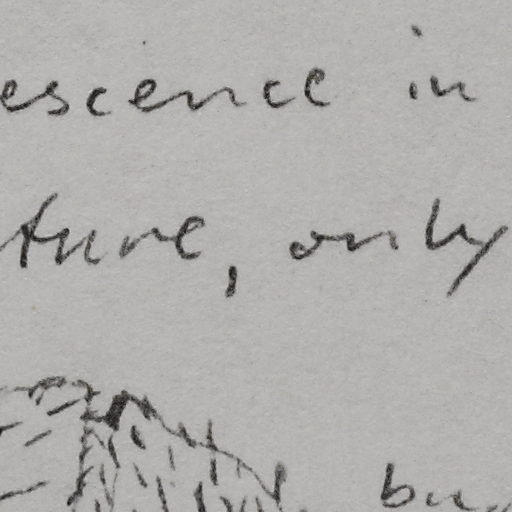 escence in
ture, only
bu